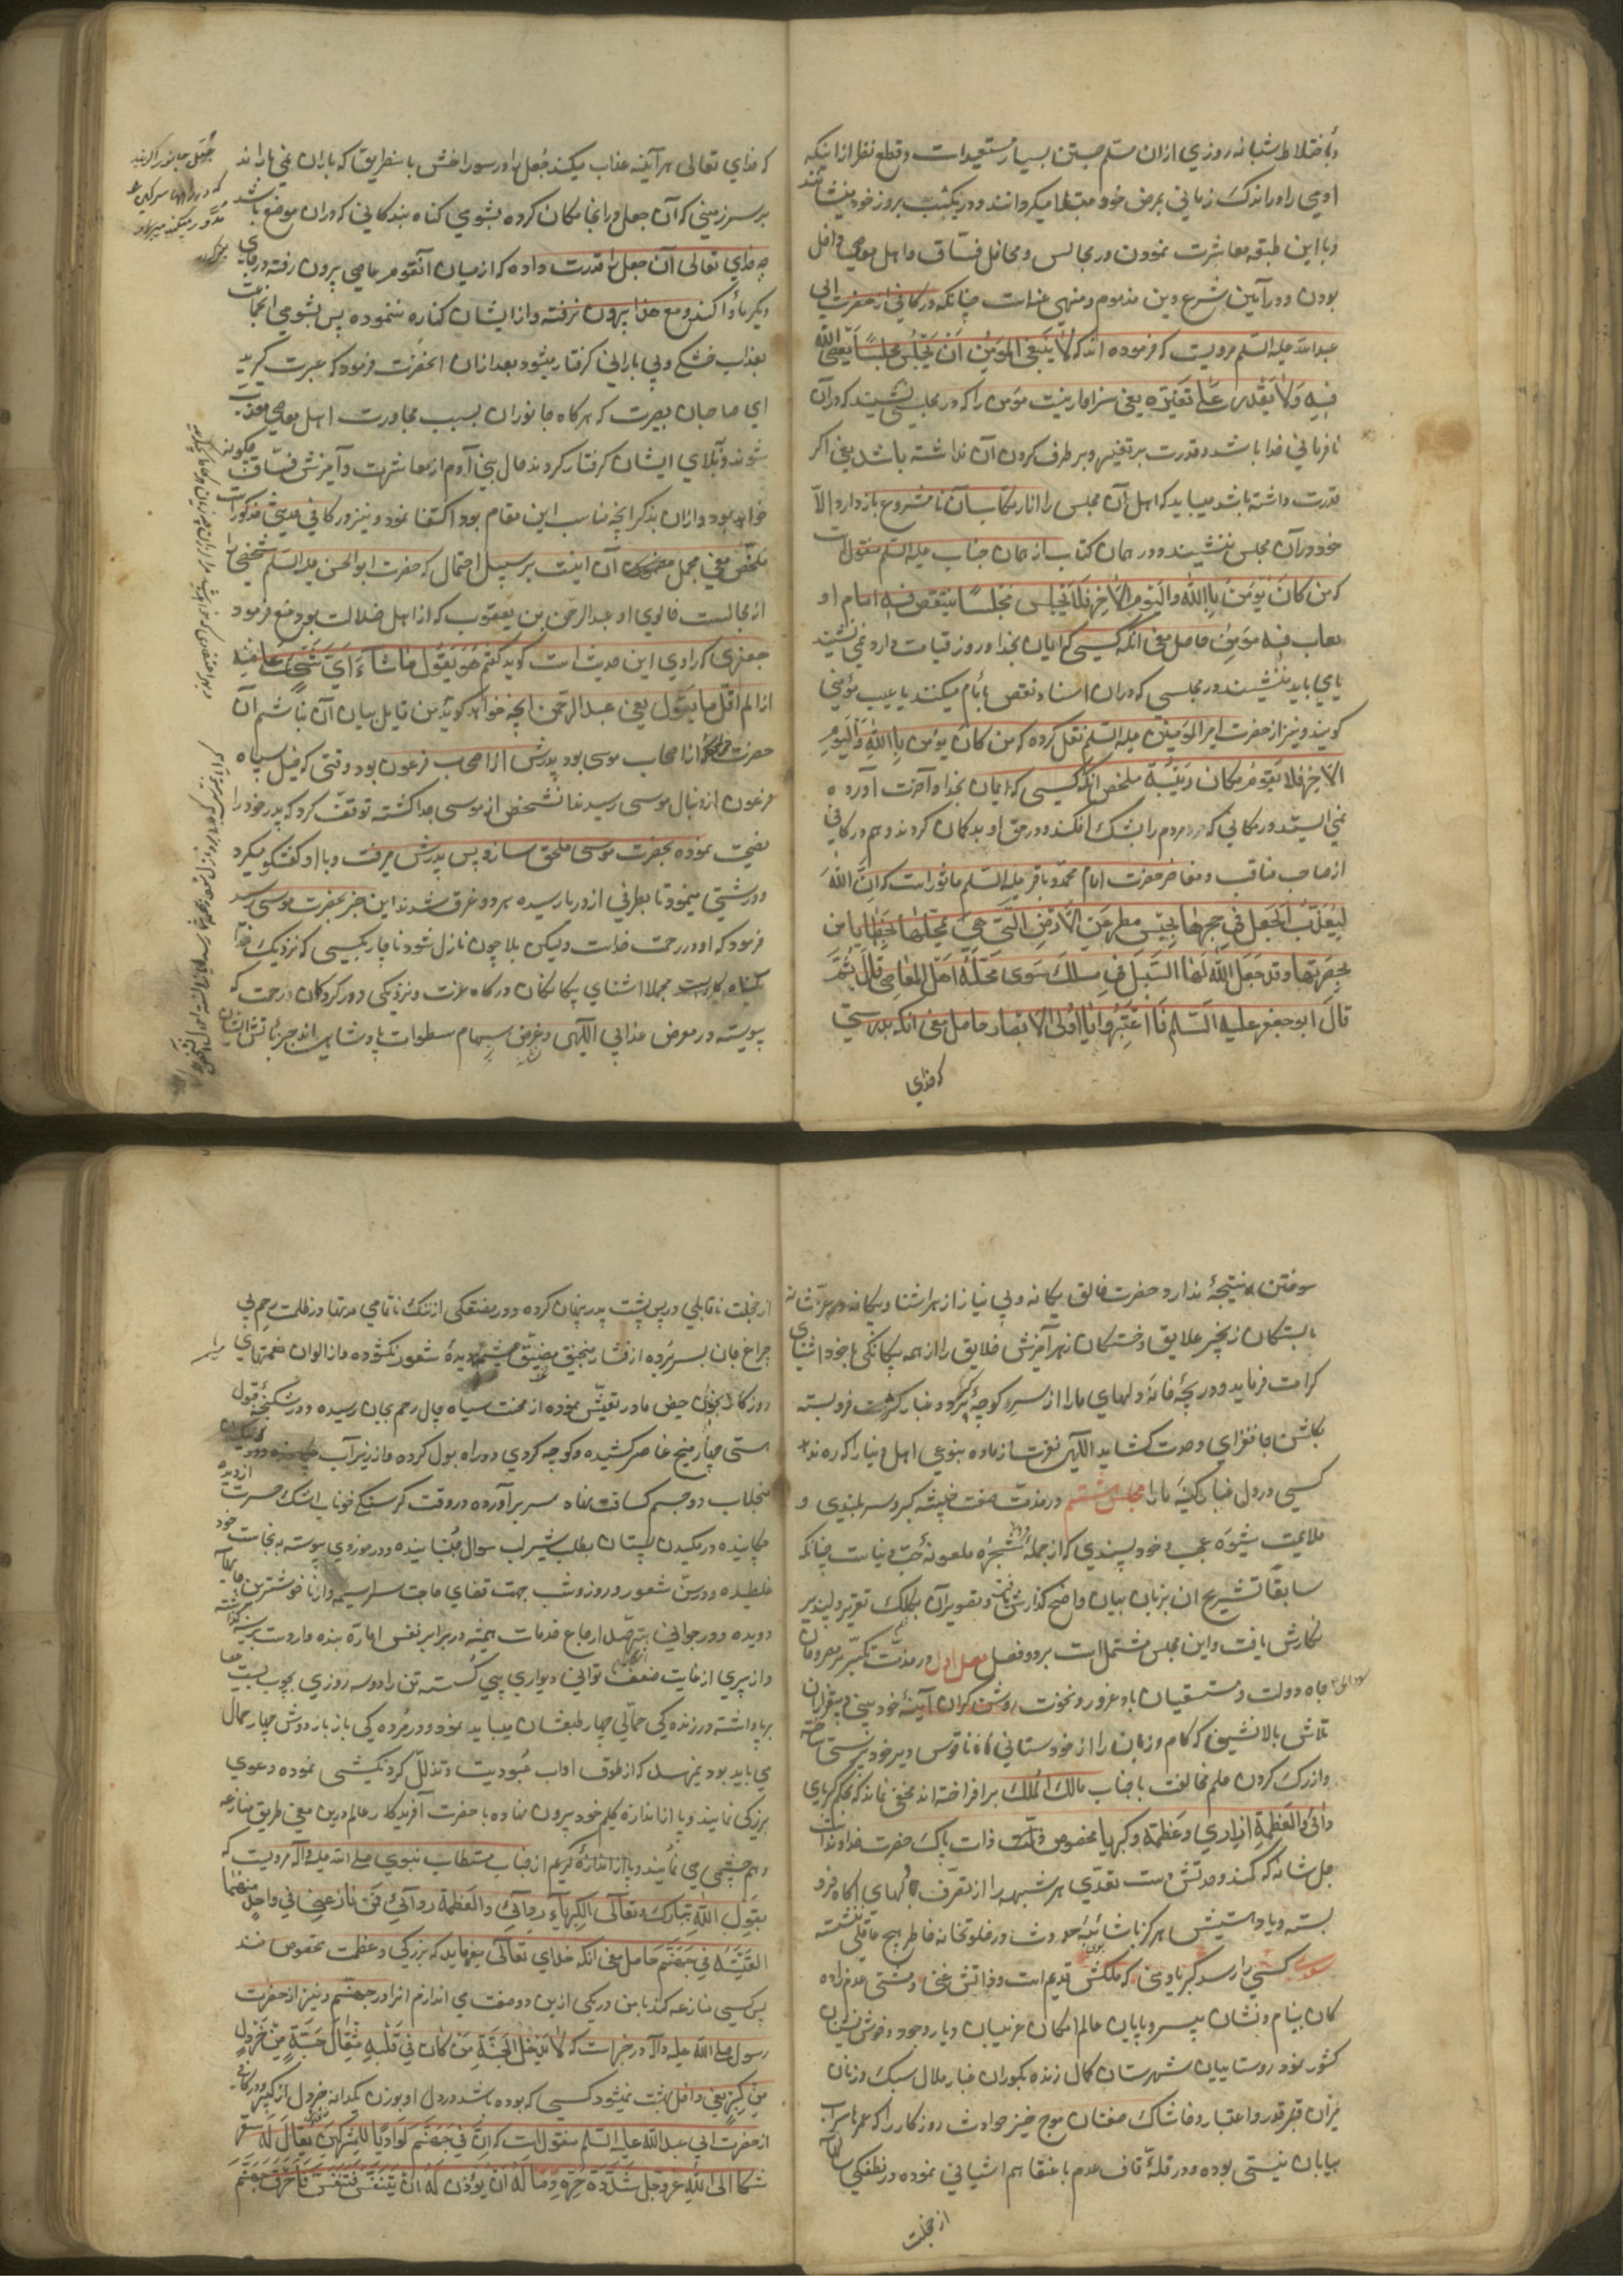 و باختلاط شبانه روزی ازان سالم جستن بسیار مستبعد است و قطع نظر از اینکه
آدمی را در اندک زمانی بمرض خود مبتلا میکردانند و در یکشب بروز خود مینشانند
و با این طبقه معاشرت نمودن و در مجالس و محافل فساق و اهل معاصی داخل
بودن در آیین شرع و دین مذموم و منهی عنه است چنانکه در کافی از حضرت ابی
عبد الله علیه السلم مرویست که فرموده اند که لا ینبغی للمؤمن ان یجلس مجلسا یعصی الله
فیه ولا یقدر علی تغییره یعنی سزاوار نیست مؤمن را که در مجلسی نشیند که در آن
نافرمانی خدا باشد و قدرت بر تغییر و بر طرف کردن آن نداشته باشد یعنی اکر
قدرت داشته باشد میباید که اهل آن مجلس را از ارتکاب آن نامشروع باز دارد و الا
خود در آن مجلس ننشیند و در همان کتاب از همان جناب علیه السلم منقول است
که من کان یؤمن بالله والیوم الآخر فلا یجلس مجلسا ینتقص فیه امام او
یعاب فیه مؤمن حاصل معنی آنکه کسی که ایمان بخدا و روز قیامت دارد نمی نشیند
یا می باید ننشیند در مجلسی که در آن اسناد نقص بامام میکنند یا عیب مؤمنی
کویند و نیز از حضرت امیر المؤمنین علیه السلم نقل کرده که من کان یؤمن بالله والیوم
الآخر فلا یقوم مکان ریبة ملخص آنکه کسی که ایمان بخدا و آخرت آورده
نمی ایستد در مکانی که مردم را بشک افکند و در حق او بد کمان کردند و هم در کافی
از صاحب مناقب و مفاخر حضرت امام محمد باقر علیه السلم ماثور است که ان الله
لیعذب الجعل فی جحرها بحبس المطر عن الارض التی هی بمحلها بخطایا من
بحضرتها وقد جعل الله لها السبیل فی مسلک سوی محلة اهل المعاصی قال ثم
قال ابو جعفر علیه السلم فاعتبروا یا اولی الابصار حاصل معنی آنکه بدرستی
که خدای
که خدای تعالی هر آینه عذاب میکند جعل را در سوراخش باینطریق که باران نمی باراند
بر سر زمینی که آن جعل در آنجا مکان کرده بشومی کناه بندکانی که در آن موضع باشد
چه خدای تعالی آن جعل را قدرت داده که از میان آنقوم عاصی بیرون رفته در جای
دیکر ماوا کند و مع هذا بیرون نرفته و از ایشان کناره ننموده پس بشومی آنجماعت
بعذاب خشکی و بی بارانی کرفتار میشود بعد ازان آنحضرت فرمود که عبرت کیرید
ای صاحبان بصیرت که هر کاه جانوران بسبب مجاورت اهل معاصی معذب
شوند و ببلای ایشان کرفتار کردند حال بنی آدم از معاشرت و آمیزش فساق چکونه
خواهد بود و ازان بذکر آنچه مناسب این مقام بود اکتفا نمود و نیز در کافی حدیثی مذکور است
ملخص معنی مجمل آن اینست بر سبیل احتمال که حضرت ابو الحسن علیه السلم شخصی را
از مجالست خالوی او عبد الرحمن بن یعقوب که از اهل ضلالت بود منع فرمود
جعفری که راوی این حدیث است کوید کفتم هو یقول ما شاء ای شیء علی منه
اذا لم اقل ما یقول یعنی عبد الرحمن آنچه خواهد کوید من قایل بیان آن نباشم آن
حضرت از اصحاب موسی بود پدرش از اصحاب فرعون بود وقتی که خیل سپاه
فرعون از دنبال موسی رسید آن شخص از موسی جدا کشته توقف کرد که پدر خود را
نصیحت نموده بحضرت موسی ملحق سازد پس پدرش میرفت و با او کفتکو میکرد
و درشتی مینمود تا بطرفی از دریا رسیده هر دو غرق شدند این خبر بحضرت موسی رسید
فرمود که او در رحمت خداست ولیکن بلا چون نازل شود ناچار بکسی که نزدیک
بکناه کار است مجملا آشنای بیکانکان درکاه عزت و نزدیکی دور کردکان رحمت که
پیوسته در معرض عذاب الهی و غرض سهام سطوات پادشاهی اند جز باتش ایشان
سوختن نتیجهٔ ندارد حضرت خالق یکانه و بی نیاز از هر آشنا و بیکانه
بستکان زنجیر علایق و خستکان زهر آمیزش خلایق را از همه بیکانکی با خود آشنای
کرامت فرماید و دریچهٔ خانهٔ دلهای ما را از سر کوچهٔ غبار کثرت فرو بسته
بکلشن جانفزای وحدت کشاید الهی نفرت از ماده بنوعی اهل دنیا را که ره ندهد
کسی در دل غبار کینهٔ ما را مجلس ششم در مذمت صفت خبیثه کبر و سربلندی و
ملایمت شیوه عجب و خودپسندی که از جملهٔ شجرهٔ ملعونه حب دنیاست چنانکه
سابقا تشریح ان بزبان بیان واضح کذارش و تصویر آن بکلک تقریر دلپذیر
نکارش یافت و این مجلس مشتمل است بر دو فصل فصل اول در مذمت تکبر
جاه و دولت و مستسقیان باد غرور و نخوت روشن کران آینهٔ خودبینی و بیقراران
تلاش بالانشینی که کام و زبان را از خودستانی ناقوس دیر خودپرستی ساخته
و از رک کردن علم مخالفت با جناب مالک الملک بر افراخته اند مخفی نماند که بحکم کبریای
ردائی والعظمة ازاری و عظمة و کبریا مخصوص ذات پاک حضرت خداوند است
جل شانه که کمند وحدتش دست تعدی هر شبهه را از تصرف فرو
بسته و با هستیش هرکز شائبهٔ حدوث در خلوتخانه خاطر هیچ عاقلی ننشسته
کسی را رسد کبریا و منی که ملکش قدیم است و ذاتش غنی و مشتی عدم زاده
کان بینام و نشان بیسر و پایان عالم امکان غریبان دیار وجود و خوش نشینان
کشور نمود روستاییان شهرستان کمال زنده بکوران غبار ملال سبک وزنان
میزان قدر و اعتبار و خاشاک صفتان موج خیز حوادث روزکار را که عمرها سراب
بیابان نیستی بوده و در قلهٔ قاف عدم با عنقا هم آشیانی نموده در نطفکی سالها
از خجلت
از خجلت ناقابلی در پس پشت پدر پنهان کرده و در مضغکی از ننک ناتمامی مدتها در ظلمت رحم بی
چراغ جان بسر برده از فشار منجنیق مضیق مشیمه دیدهٔ شعور نکشوده و از الوان نعمتهای
روزکار بخون حیض مادر تعیش نموده از محنت سیاه چال رحم بجان رسیده و در شکنجهٔ
هستی چهار میخ عناصر کشیده و کوچه کردی دو راه بول کرده و از زیر آب
منجلاب دو جسم کسافت پناه سر بر آورده در وقت کرسنکی خوناب اشک حسرت از دیده
چکانیده در مکیدن پستان بطلب شیر لب سوال جنبانیده و در خردی پیوسته به نجاست خود
غلطیده و در سن شعور روز و شب جهت قضای حاجت سراسیمه و از ناخوشترین
دویده و در جوانی بتحمل ارجاع خدمات بهیمیه در برابر نفس اماره بنده وار دست بر سینه
و از پیری از غایت ضعف توانی دیواری پی کسسته تن را دو سه روزی بچوب بست عصا
برپا داشته و در زندکی حمالی چهار طبعشان میباید نمود و در مردکی باز بار دوش چهار حمال
می باید بود نمی رسد که از طوق آداب عبودیت و تذلل کردنکشی نموده دعوی
بزرکی نمایند و پا از اندازه کلیم خود بیرون نهاده با حضرت آفریدکار عالم درین معنی طریق منازعه
و هم چشمی می نمایند از جناب مستطاب نبوی صلی الله علیه و آله مرویست که
یقول الله تبارک و تعالی الکبریاء ردائی والعظمة ردائی فمن نازعنی فی واحد منهما
القیته فی جهنم حاصل معنی آنکه خدای تعالی میفرماید که بزرکی و عظمت مخصوص منند
پس کسی منازعه کند با من در یکی ازین دو صفت می اندازم او را در جهنم و نیز از حضرت
رسول صلی الله علیه و آله در خبر است که لا یدخل الجنة من کان فی قلبه مثقال حبة من خردل
من کبر یعنی داخل بهشت نمیشود کسی که بوده باشد در دل او بوزن یکدانه خردل از کبر و در کافی
از حضرت ابی عبد الله علیه السلم منقول است که ان فی جهنم لوادیا للمتکبرین یقال له سقر
شکا الی الله عز و جل شدة حره وساله ان یؤذن له ان یتنفس فتنفس فاحرق جهنم